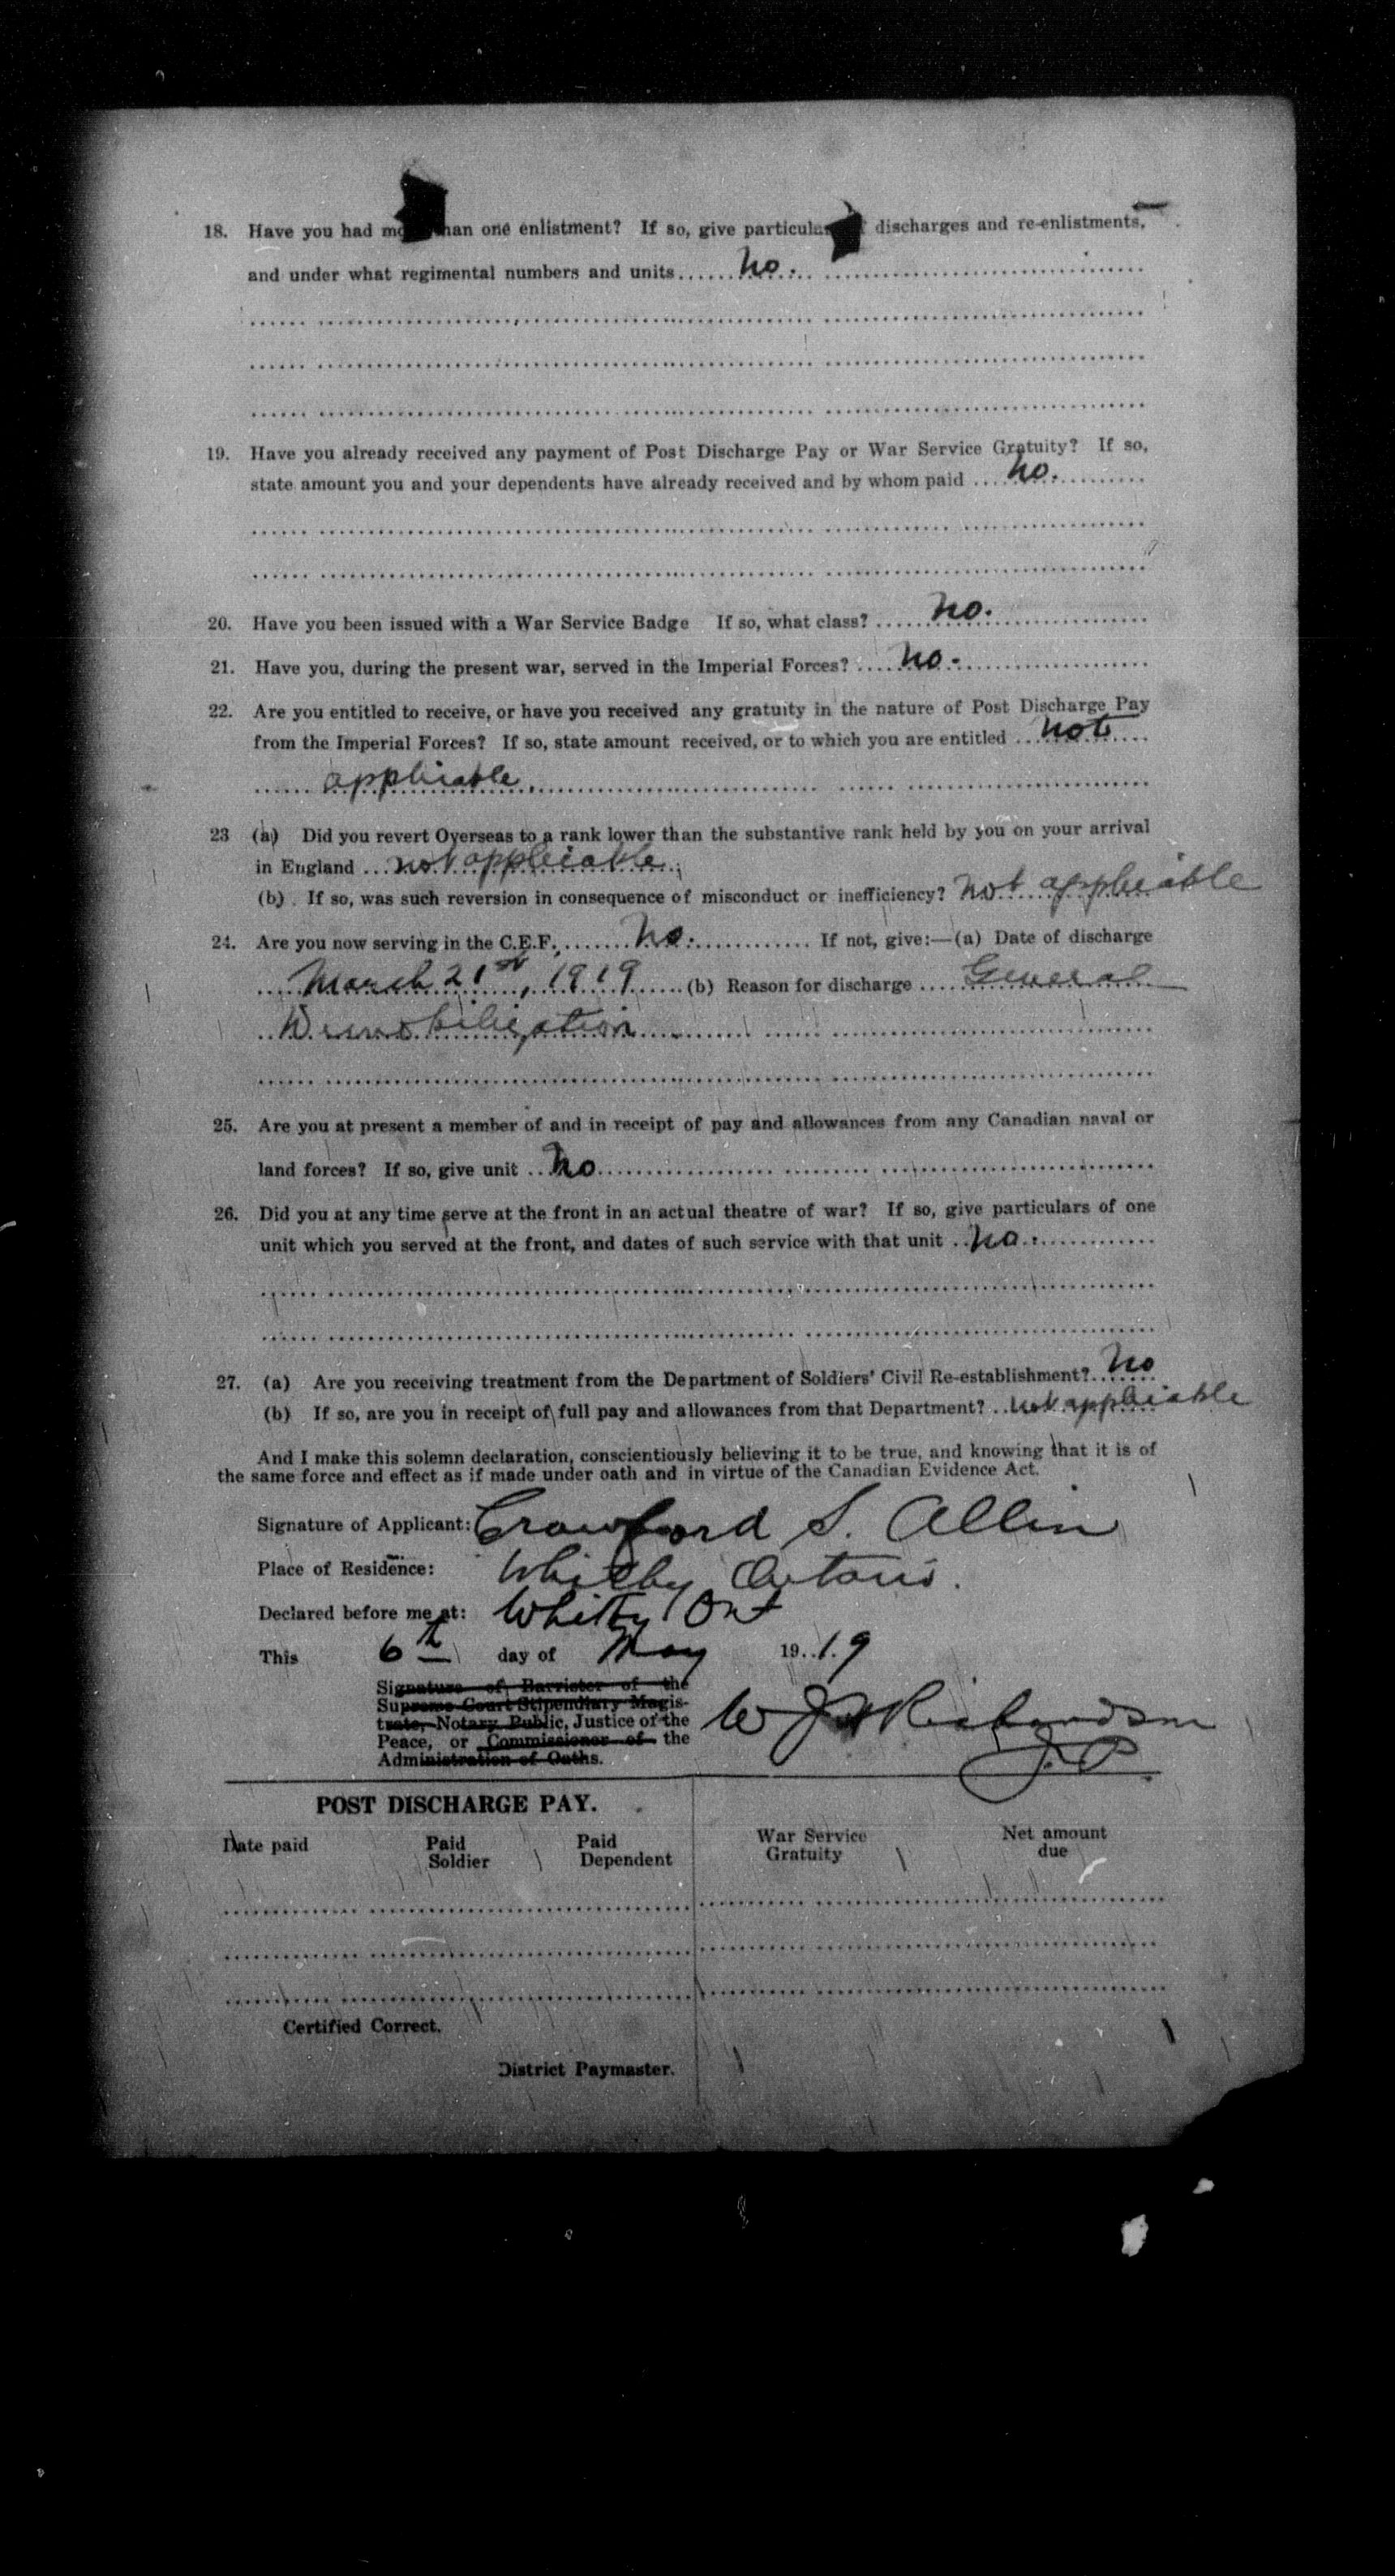 18. Have you had mo han one enlistment? If so, give particula discharges and re-enlistments,
and under what regimental numbers and units......No.
19. Have you already received any payment of Post Discharge Pay or War Service Gratuity? If so,
state amount you and your dependents have already received and by whom paid ....No.
20. Have you been issued with a War Service Badge If so, what class? ......No.
21. Have you, during the present war, served in the Imperial Forces? ....No.
22. Are you entitled to receive, or have you received any gratuity in the nature of Post Discharge Pay
from the Imperial Forces? If so, state amount received, or to which you are entitled ...Not
applicable.
23 (a) Did you revert Overseas to a rank lower than the substantive rank held by you on your arrival
in England ...not applicable.
(b) If so, was such reversion in consequence of misconduct or inefficiency? Not applicable
24. Are you now serving in the C.E.F. ......No. ............ If not, give:—(a) Date of discharge
March 21st, 1919 ......(b) Reason for discharge ....General
Demobilization
25. Are you at present a member of and in receipt of pay and allowances from any Canadian naval or
land forces? If so, give unit ..No
26. Did you at any time serve at the front in an actual theatre of war? If so, give particulars of one
unit which you served at the front, and dates of such service with that unit ..No.
27. (a) Are you receiving treatment from the Department of Soldiers' Civil Re-establishment? No
(b) If so, are you in receipt of full pay and allowances from that Department? ..not applicable
And I make this solemn declaration, conscientiously believing it to be true, and knowing that it is of
the same force and effect as if made under oath and in virtue of the Canadian Evidence Act.
Signature of Applicant: Crawford S. Allin
Place of Residence: Whitby Ontario.
Declared before me at: Whitby Ont
This 6th day of May 19..19
Signature of Barrister of the
Supreme Court Stipendiary Magis-
trate, Notary Public, Justice of the
Peace, or Commissioner of the
Administration of Oaths.
W J H Richardson
J.P.
POST DISCHARGE PAY.
Date paid Paid Soldier Paid Dependent War Service Gratuity Net amount due
Certified Correct.
District Paymaster.